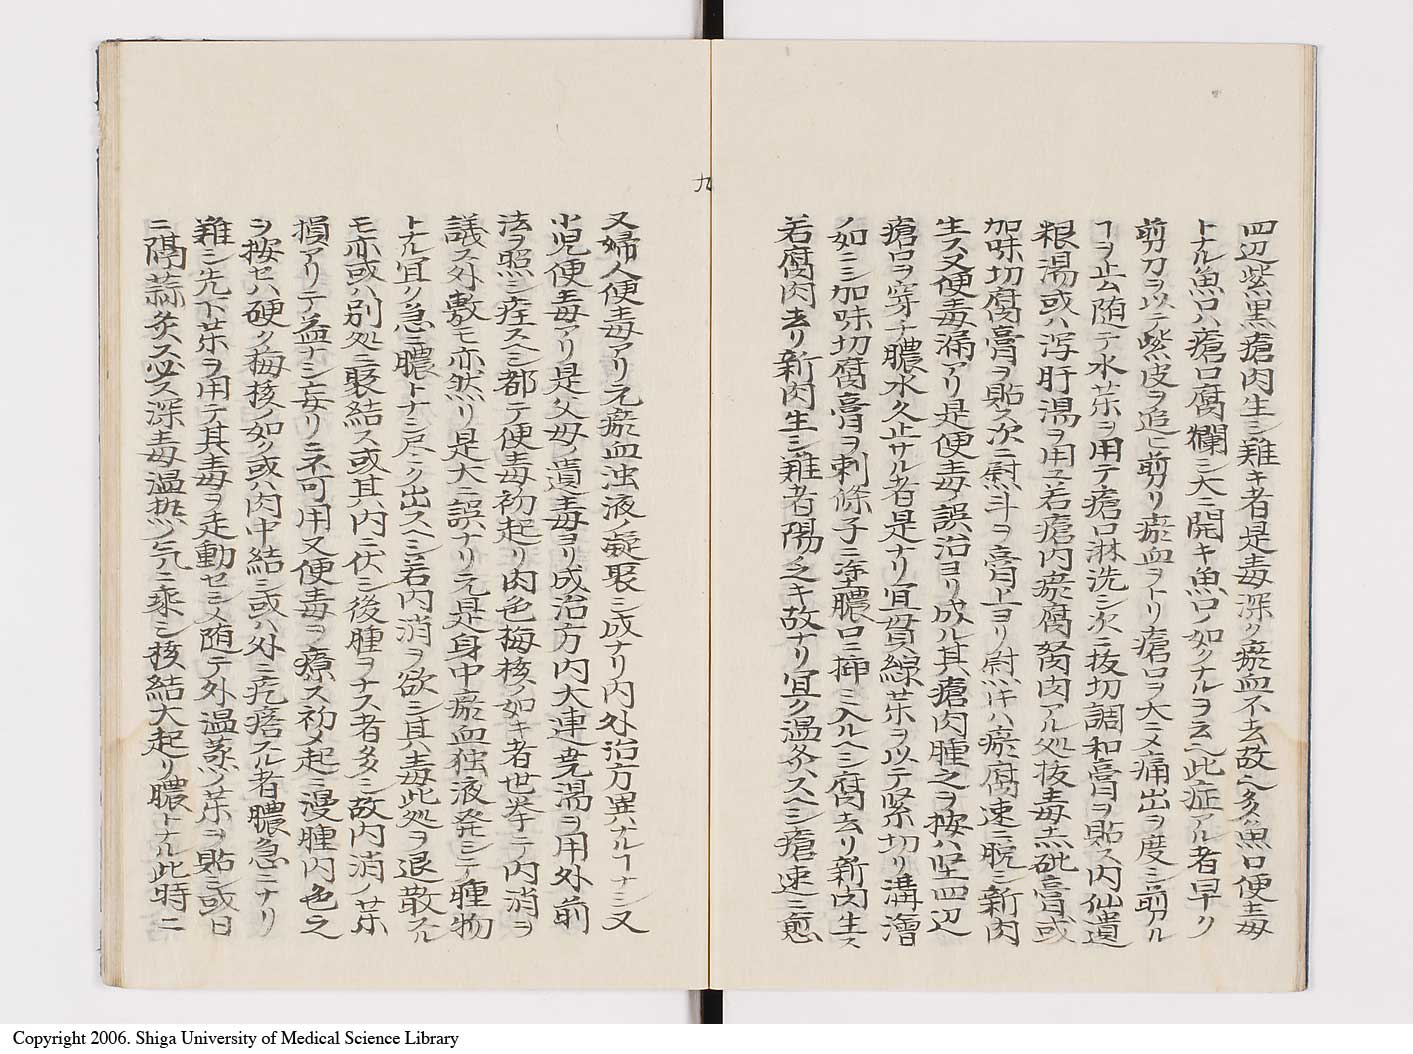 四辺紫黒瘡肉生シ難キ者是毒深ク瘀血不去故ヘ多魚口便毒
トナル魚口ハ瘡口腐爛シ大ニ開キ魚口ノ如クナルヲ云ヘ此症アル者早ク
剪刀ヲ以テ紫皮ヲ追ヒ剪リ瘀血ヲトリ瘡口ヲ大ニメ痛出ヲ度シ剪ル
ヿヲ止ム随テ水茶ヲ用テ瘡口淋洗シ次ニ抜切調和膏ヲ貼ス内仙遺
粮湯或ハ泻肝湯ヲ用ユ若瘡内瘀腐努肉アル処抜毒黒砒膏或
加味切腐膏ヲ貼ス次ニ熨斗ヲ膏上ヨリ熨ス𪜈ハ瘀腐速ニ脱シ新肉
生ス又便毒漏アリ是便毒ノ誤治ヨリ成ル其瘡肉腫之ヲ按ハ坚四辺
瘡口ヲ穿チ膿水久止サル者是ナリ宜貫線茶ヲ以テ緊切リ溝澮
ノ如ニシ加味切腐膏ヲ刺條子ニ塗膿口ニ挿ミ入ルヘシ腐去リ新肉生ス
若腐肉去リ新肉生シ難者陽乏キ故ナリ宜ク温灸スヘシ瘡速ニ愈
九
又婦人便毒アリ元瘀血浊液ノ凝聚シ成ナリ内外治方異ナルヿナシ又
小児便毒アリ是父母ノ遺毒ヨリ成治方内大連尭湯ヲ用外前
法ヲ照シ痊スヘシ都テ便毒初起リ肉色梅核ノ如キ者世挙テ内消ヲ
議ス外敷モ亦然リ是大ニ誤ナリ元是身中瘀血独液発シテ腫物
トナル宜ク急ニ膿トナシ戸ニク出スヘシ若内消ヲ欲シ𪜈ハ毒此処ヲ退散スル
モ亦或ハ別処ニ聚結ス或其内ニ伏シ後腫ヲナス者多シ故内消ノ茶
損アリテ益ナシ妄リニ不可用又便毒ヲ療ス初メ起ニ漫腫肉色之
ヲ按セハ硬ク梅核ノ如ク或ハ肉中結シ或ハ外ニ疙瘩スル者膿急ニナリ
難シ先下茶ヲ用テ其毒ヲ走動セシメ随テ外温蒸ノ茶ヲ貼シ或日
ニ隔蒜灸ス必ス深毒温熱ノ気ニ乗シ核結大起リ膿トナル此時ニ